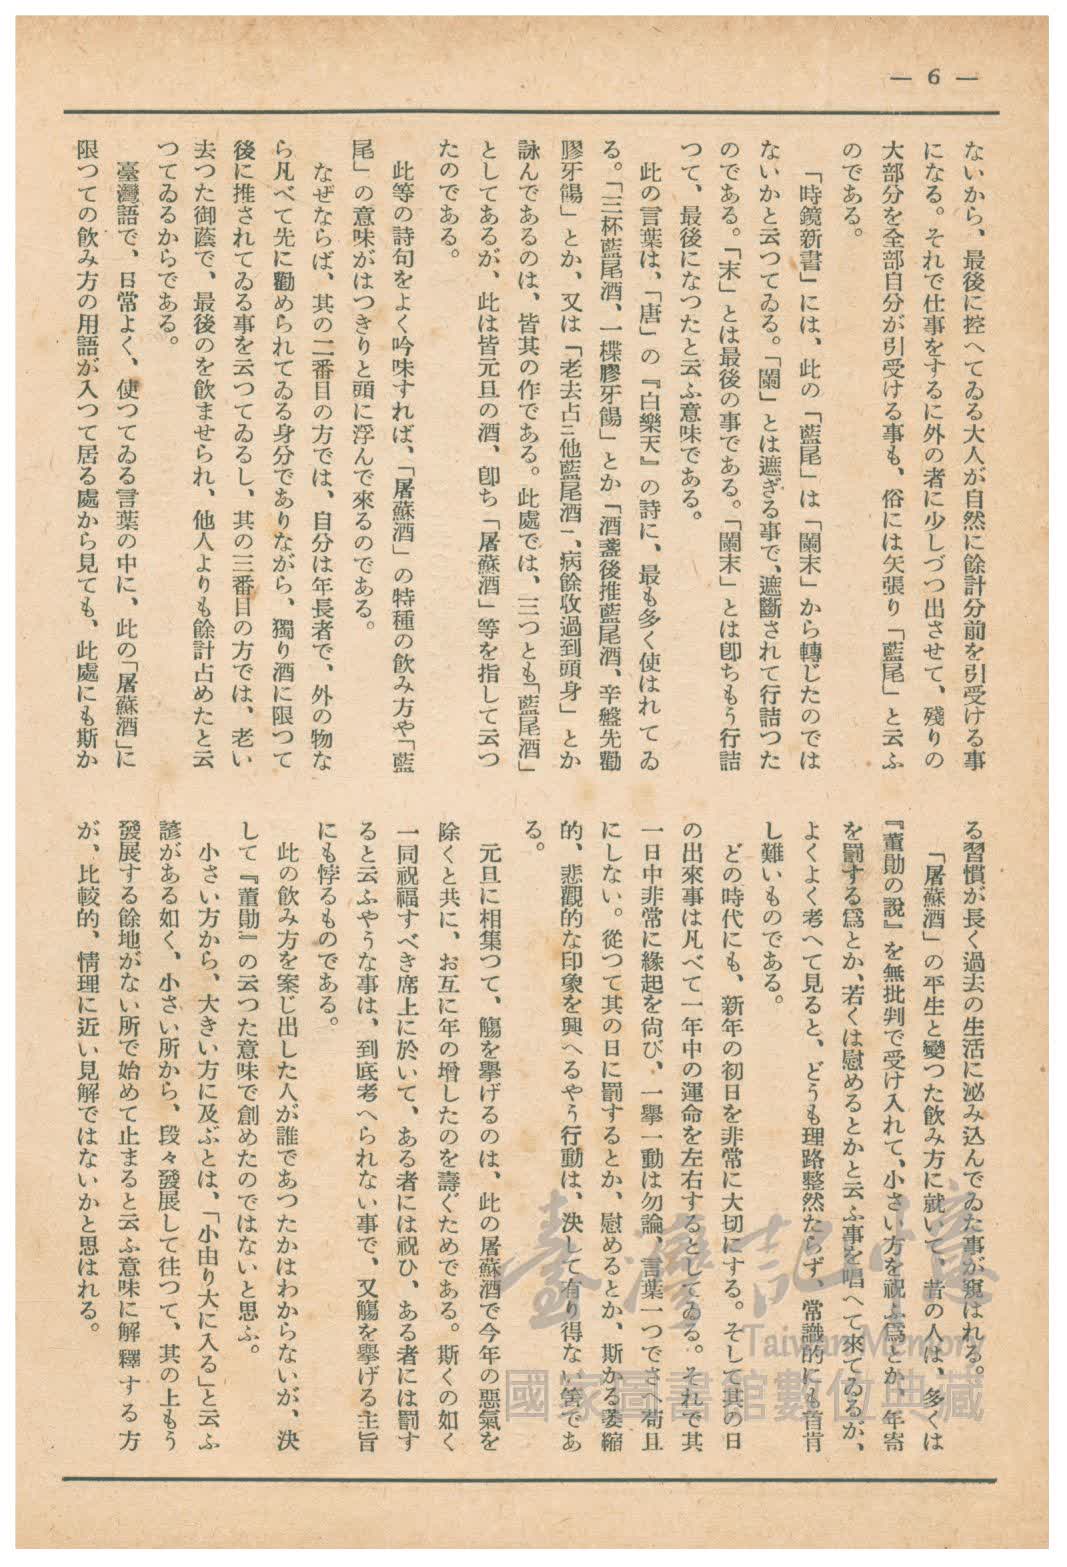 — 6 —
ないから、最後に控へてゐる大人が自然に餘計分前を引受ける事
になる。それで仕事をするに外の者に少しづつ出させて、殘りの
大部分を全部自分が引受ける事も、俗には矢張り「藍尾」と云ふ
のである。
「時鏡新書」には、此の「藍尾」は「闌末」から轉じたのでは
ないかと云つてゐる。「闌」とは遮ぎる事で、遮斷されて行詰つた
のである。「末」とは最後の事である。「闌末」とは卽ちもう行詰
つて、最後になつたと云ふ意味である。
此の言葉は、「唐」の『白樂天』の詩に、最も多く使はれてゐ
る。「三杯藍尾酒、一楪膠牙餳」とか「酒盞後推藍尾酒、辛盤先勸
膠牙餳」とか、又は「老去占ニ他藍尾酒一、病餘收過到頭身」とか
詠んであるのは、皆其の作である。此處では、三つとも「藍尾酒」
としてあるが、此は皆元旦の酒、卽ち「屠蘇酒」等を指して云つ
たのである。
此等の詩句をよく吟味すれば、「屠蘇酒」の特種の飲み方や「藍
尾」の意味がはつきりと頭に浮んで來るのである。
なぜならば、其の二番目の方では、自分は年長者で、外の物な
ら凡べて先に勸められてゐる身分でありながら、獨り酒に限つて
後に推されてゐる事を云つてゐるし、其の三番目の方では、老い
去つた御蔭で、最後のを飲ませられ、他人よりも餘計占めたと云
つてゐるからである。
臺灣語で、日常よく、使つてゐる言葉の中に、此の「屠蘇酒」に
限つての飲み方の用語が入つて居る處から見ても、此處にも斯か
る習慣が長く過去の生活に泌み込んでゐた事が窺はれる。
「屠蘇酒」の平生と變つた飲み方に就いて、昔の人は、多くは
『董勛の說』を無批判で受け入れて、小さい方を祝ふ爲とか、年寄
を罰する爲とか、若くは慰めるとかと云ふ事を唱へて來てゐるが、
よくよく考へて見ると、どうも理路整然たらず、常識的にも首肯
し難いものである。
どの時代にも、新年の初日を非常に大切にする。そして其の日
の出來事は凡べて一年中の運命を左右するとしてゐる。それで其
一日中非常に緣起を尙び、一擧一動は勿論、言葉一つでさへ苟且
にしない。從つて其の日に罰するとか、慰めるとか、斯かる萎縮
的、悲觀的な印象を興へるやう行動は、決して有り得ない筈であ
る。
元旦に相集つて、觴を擧げるのは、此の屠蘇酒で今年の惡氣を
除くと共に、お互に年の增したのを壽ぐためである。斯くの如く
一同祝福すべき席上に於いて、ある者には祝ひ、ある者には罰す
ると云ふやうな事は、到底考へられない事で、又觴を擧げる主旨
にも悖るものである。
此の飲み方を案じ出した人が誰であつたかはわからないが、決
して『董勛』の云つた意味で創めたのではないと思ふ。
小さい方から、大きい方に及ぶとは、「小由り大に入る」と云ふ
諺がある如く、小さい所から、段々發展して往つて、其の上もう
發展する餘地がない所で始めて止まると云ふ意味に解釋する方
が、比較的、情理に近い見解ではないかと思はれる。
臺灣記憶
Taiwan Memory
國家圖書館數位典藏